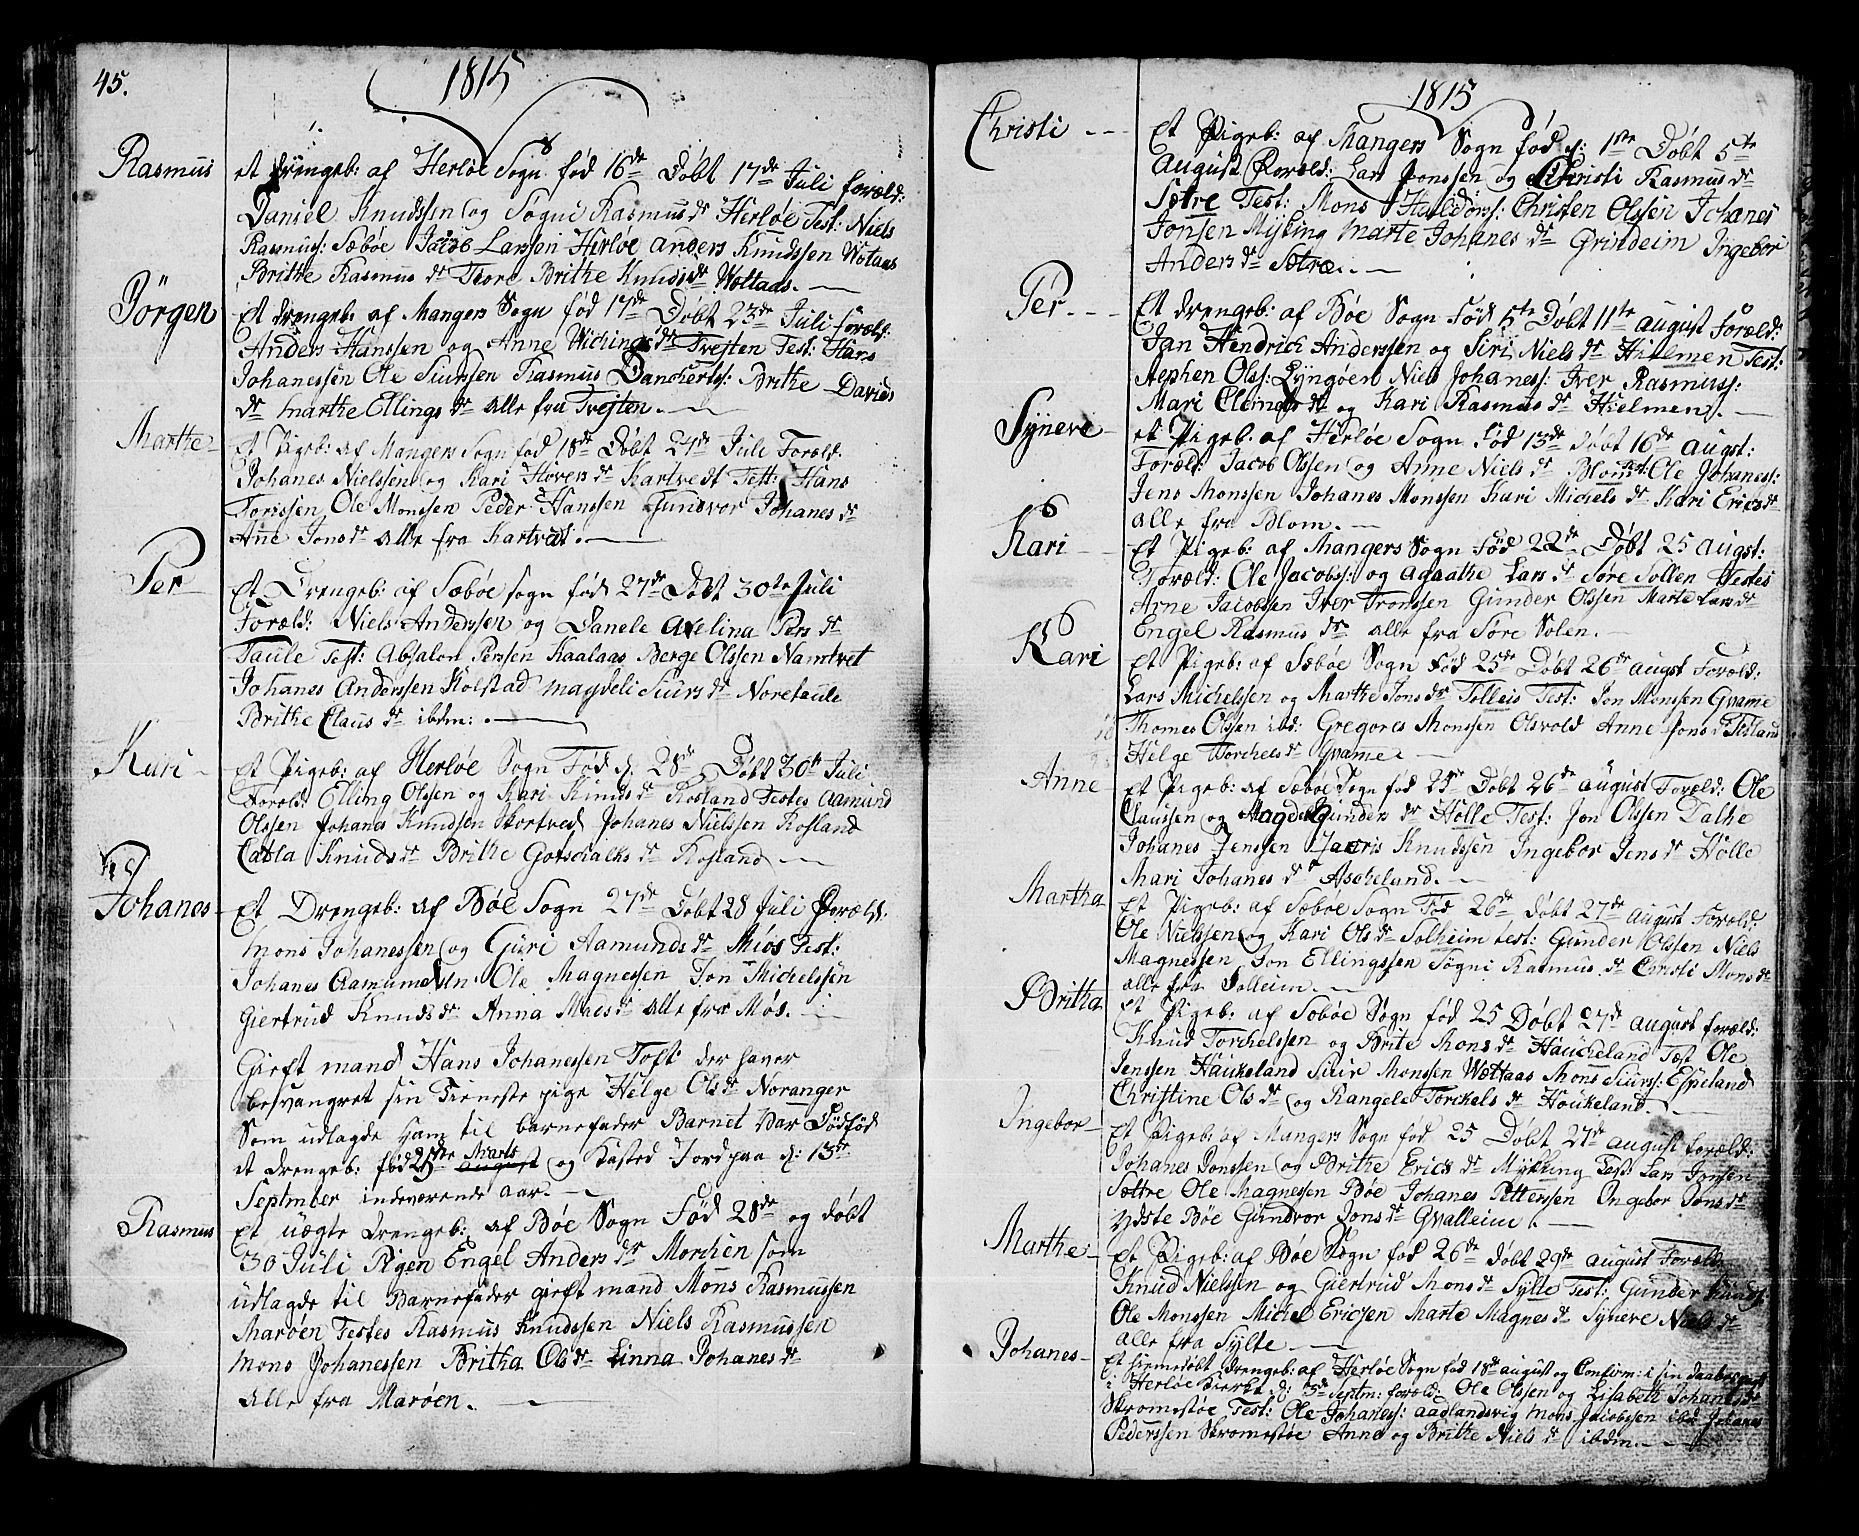 45.
1815
Rasmus
et drengeb: af Herløe Sogn fød 16de Døbt 17de Juli foræld:
Daniel Knudssen og Søgni Rasmusdr Herløe Test: Niels
Rasmuss: Sæbøe Jacob Larssen Herløe Anders Knudssen Wotaas
Brithe Rasmusdr Brithe Knudsdr Wottaas. —
Jörgen
Et drengeb: af Mangers Sogn fød 17de Døbt 23de Juli foræld:
Anders Hanssen og Anne Wichingsdr Tvejten Test: Hans
Johanessen Ole Siurssen Rasmus Danchertss: Brithe Davids
dr Marthe Ellingsdr alle fra Tvejten. —
Marthe
Et Pigeb: af Mangers Sogn fød 18de Døbt 24de Juli Foræld:
Johanes Nielssen og Kari Hoversdr Kartvedt Test: Hans
Torissen Ole Monssen Peder Hanssen Gundvor Johanesdr
Anne Jonsdr alle fra Kartvedt. —
Per
Et Drengeb: af Sæbøe sogn fød 27de Døbt 30te Juli
Foræld: Niels Anderssen og Danele Axelina Persdr
Taule Test: Absalon Perssen Kaalaas Berge Olssen Namtvet
Johanes Anderssen Kolstad Magdeli Siursdr Noretaule
Brithe Clausdr ibdm: —
Kari
Et Pigeb: af Herløe Sogn Fød d: 28de Døbt 30te Juli
Foræld: Elling Olssen og Kari Knudsdr Rosland Testes Aamund
Olssen Johanes Knudsen Skortved Johanes Nielssen Rosland
Catla Knudsdr Brithe Gotschalksdr Rosland —
Johanes
Et Drengeb: af Bøe Sogn 27de Døbt 28 Juli Foræld:
Mons Johanessen og Guri Aamundsdr Miøs Test:
Johanes Aamundsen Ole Magnessen Jon Michelssen
Giertrud Knudsdr Anna Madsdr alle fra Møs. —
Gieft mand Hans Johanessen Toft: der haver
besvangret sin Tieneste pige Helge Olsdr Noranger
Som udlagde ham til barnefader Barnet Var Dødfød
et drengeb: fød 25de Marts august og Kasted Jord paa d: 13de
September indeværende aar. —
Rasmus
Et uægte drengeb: af Bøe Sogn Fød 28de og døbt
30 Juli Pigen Engel Andersdr Morchen som
udlagde til Barnefader gieft mand Mons Rasmussen
Marøen Testes Rasmus Knudssen Niels Rasmussen
Mons Johanessen Britha Olsdr Linna Johanesdr
alle fra Marøen. —
1815
Christi
Et Pigeb: af Mangers Sogn fød d: 1ste Døbt 5te
August Foræld: Lars Jonssen og Christi Rasmusdr
Sætre Test: Mons Haldorss: Christen Olssen Johanes
Jonsen Mjking Marte Johanesdr Grindeim Ingebor
Andersdr Sætre. —
Per
Et drengeb: af Bøe Sogn Fød 5te Døbt 11te august Foræld:
Jan Hendrich Anderssen og Siri Nielsdr Hielmen Test:
Stephen Olss: Lyngøen Niels Johaness: Iver Rasmuss:
Mari Clemetsdr og Kari Rasmusdr Hielmen. —
Synere
et Pigeb: af Herløe Sogn Fød 13de Døbt 16de augst:
Foræld: Jacob Olssen og Anne Nielsdr Blom Test: Ole Johaness:
Jens Monssen Johanes Monssen Kari Michelsdr Kari Ericsdr
alle fra Blom. —
Kari
Et Pigeb: af Mangers Sogn Fød 22de Døbt 25 augst:
Foræld: Ole Jacobss: og Agaathe Larsdr Søre Sollen Testes
Arne Jacobssen Iver Tronssen Gunder Olssen Marte Larsdr
Engel Rasmusdr alle fra Søre Solen. —
Kari
Et Pigeb: af Sæbøe Sogn Fød 25de Døbt 26de augst Foræld:
Lars Michelssen og Marthe Jonsdr Tolleis Test: Jon Monssen Qvame
Thomes Olssen ibd: Gregores Monssen Olsvold Anne Jonsdr
Helge Torchelsdr Qvame —
Anne
Et Pigeb: af Sæbøe Sogn fød 25de Døbt 26de august Foræld: Ole
Claussen og Magde Gundersdr Hølle Test: Jon Olssen Dalhe
Johanes Jenssen Knudssen Ingebor Jensdr Hølle
Mari Johanesdr Ascheland. —
Martha
Et Pigeb: af Sæbøe Sogn Fød 26de døbt 27de august Foræld:
Ole Nielssen og Kari Olsdr Solheim test: Gunder Olssen Niels
Magnessen Jon Ellingssen Søgni Rasmusdr Christi Monsdr
alle fra Solleim. —
Britha
Et Pigeb: af Sæbøe Søgn fød 25 Døbt 27de august foræld:
Knud Torchelssen og Brite Monsdr Hauckeland Test Ole
Jenssen Haukeland Siur Monssen Wottaas Mons Siurss: Espeland
Christine Olsdr og Rangele Torckelsdr Houkeland. —
Ingebor
Et Pigeb: af Mangers Sogn fød 25 Døbt 27de august foræld:
Johanes Jonssen og Brithe Ericsdr Mykking Test: Lars Jonsen
Sættre Ole Magnessen Bøe Johanes Pettersen Ingebor Jonsdr
Ydste Bøe Gundvor Jonsdr Qvalleim. —
Marthe
Et Pigeb: af Bøe Sogn fød 26de døbt 29de august Foræld:
Knud Nielssen og Giertrud Monsdr Sylte Test: Gunder Knuds:
Ole Monssen Michel Ericsen Marte Magnesdr Synere Nielsdr
alle fra Sylte. —
Johanes
Et hiemedøbt drengeb: af Herløe Sogn fød 18de august og Confirm: i sin daab
i Herløe Kirke d: 3de Septm: foræld: Ole Olssen og Lisabeth Johanesdr
Skromestøe Test: Ole Johaness: Aadlandsvig Mons Jacobssen ibd Johanes
Pederssen Skromestøe Anne og Brithe Nielsdr ibdm. —